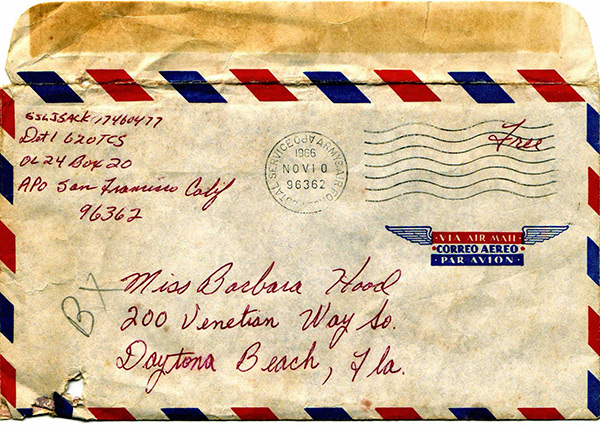 SSLJSACK 17460477
Det 1 620 TCS
OL 24 Box 20
APO San Francisco Calif
96362
POSTAL SERVICE ARMY & AIR FORCE
1966
NOV 10
96362
Free
VIA AIR MAIL
CORREO AEREO
PAR AVION
BX
Miss Barbara Hood
200 Venetian Way So.
Daytona Beach, Fla.